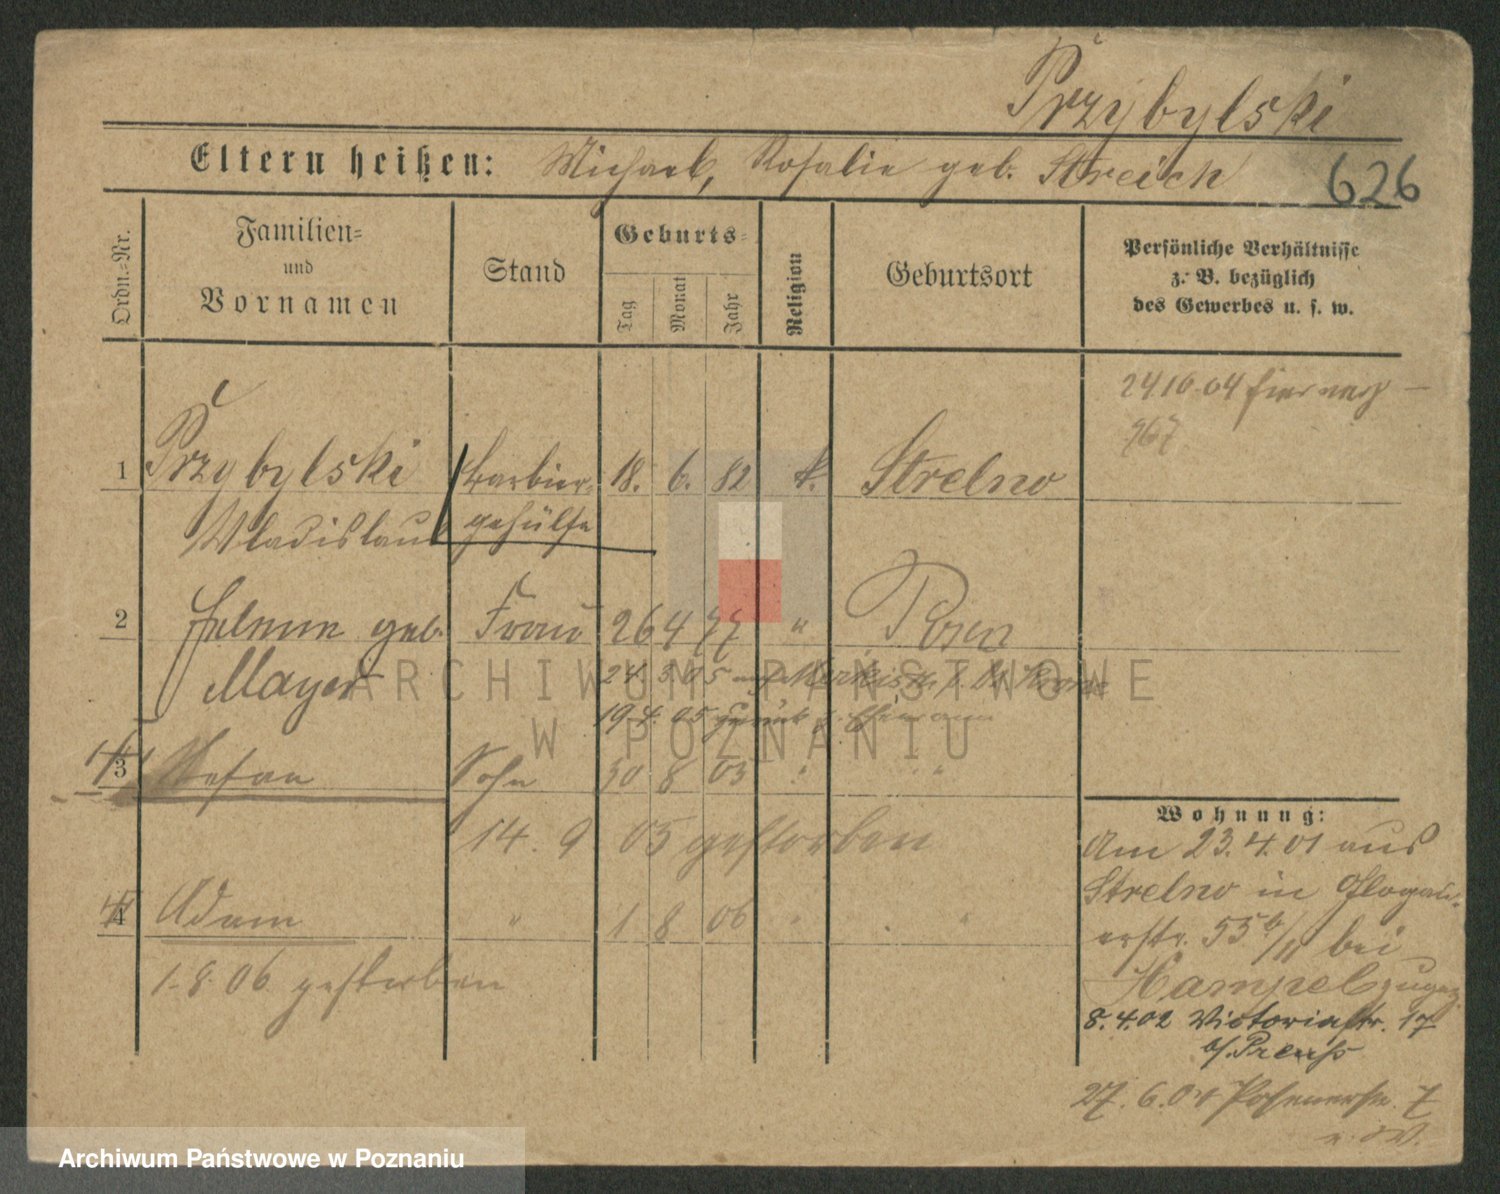 Przybylski
Eltern heißen: Michael, Rosalie geb. Streich
626
Ordn.-Nr.
Familien-
und
Vornamen
Stand
Geburts-
Tag
Monat
Jahr
Religion
Geburtsort
Persönliche Verhältnisse
z. B. bezüglich
des Gewerbes u. s. w.
24 10 04
967
1 Przybylski Barbier- 18. 6. 82 k. Strelno
Wladislaus gehülfe
2 Helene geb. Frau 26 4 77 " Posen
Mayer
24. 3 05
19. 4. 05 zurück
3 Stefan Sohn 30 8 03 " "
14. 9 05 gestorben
4 Adam " 1 8 06 " "
1. 8. 06 gestorben
Wohnung:
Am 23. 4. 01 aus
Strelno in Glogau-
erstr. 53 bei
Hampel zugez.
8. 4. 02 Victoriastr. 17
b/. Preuss
27. 6. 04 Posenerstr. 7
ARCHIWUM PAŃSTWOWE
W POZNANIU
Archiwum Państwowe w Poznaniu